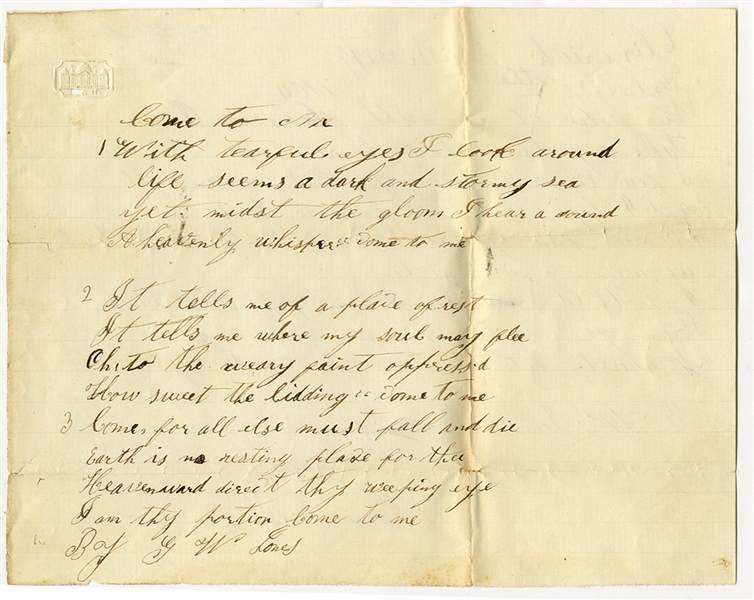 Come to Me
1 With tearful eyes I look around
life seems a dark and stormy sea
yet midst the gloom I hear a sound
A heavenly whisper "Come to me
2 It tells me of a place of rest
It tells me where my soul may flee
Oh, to the weary faint oppress'd
How sweet the bidding "Come to me
3 Come, for all else must fall and die
Earth is no resting place for the
Heavenward direct thy weeping eye
I am thy portion Come to me
By G W Jones